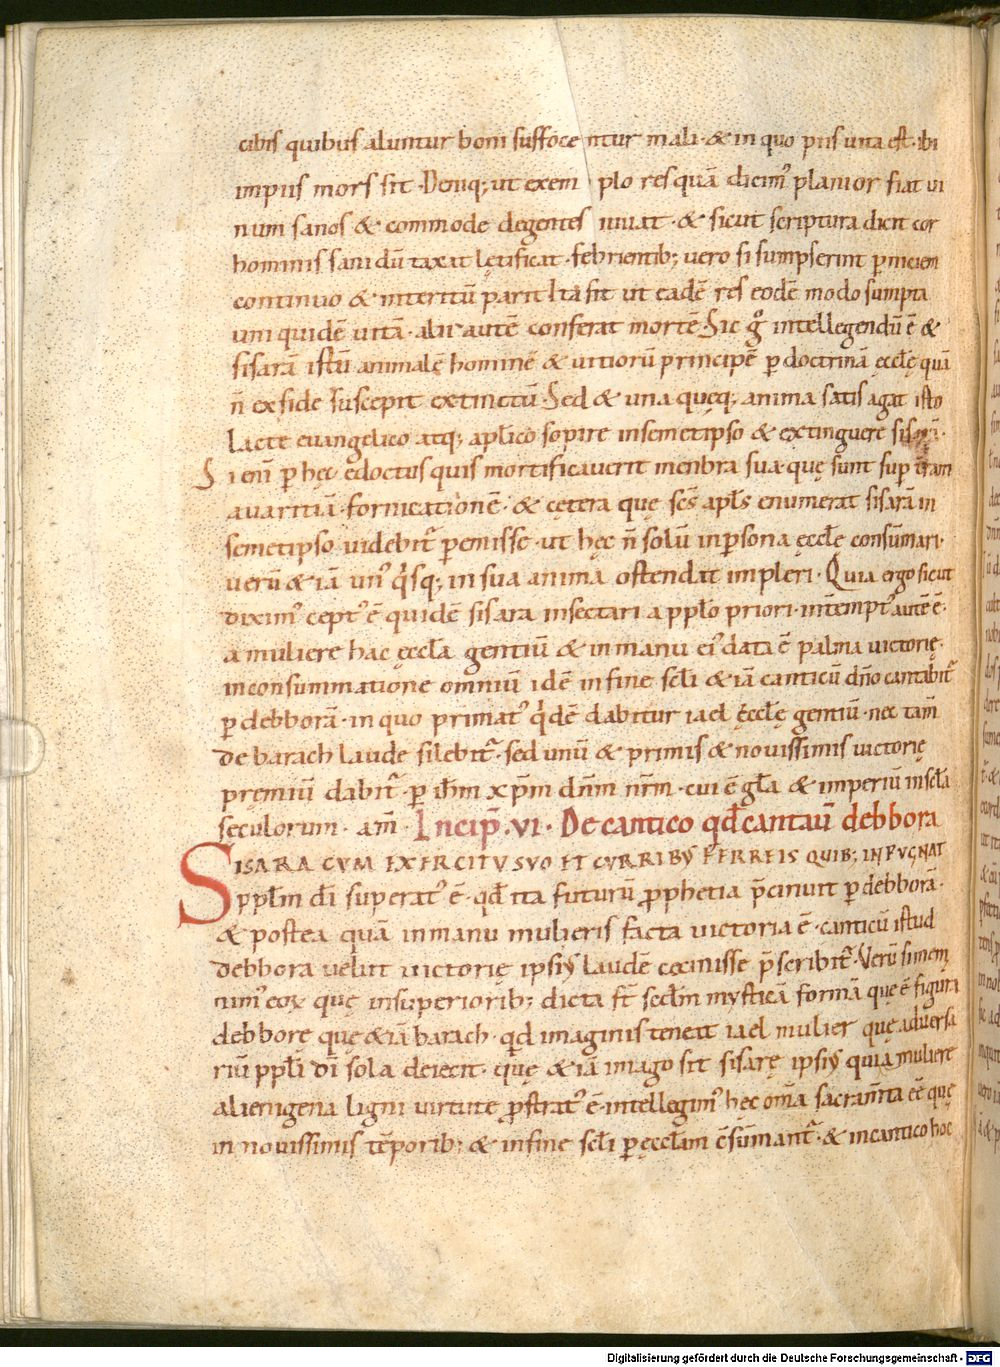 cibis quibus aluntur boni suffocentur mali · & in quo piis uita est · ibi
impiis mors sit · Deniq; ut exemplo res quā dicim᷒ planior fiat ui
num sanos & commode degentes iuuat · & sicut scriptura dicit cor
hominis sani dūtaxat lętificat · febrientib; uero si sumpserint p̄niciem
continuo & interitū parit Ita fit ut eadē res eodē modo sumpta
uni quidē uitā · alii autē conferat mortē · Sic g̊ intellegendū ē &
sisarā istū animalē hominē & uitiorū principē p doctrinā ęccl̄ę quā
n̄ ex fide suscepit extinctū · Sed & una quęq; anima satis agat isto
lacte euangelico atq; apl̄ico sopire insemetipso & extinguere sisarā ·
Si eni᷒ p hęc edoctus quis mortificauerit menbra sua quę sunt sup t̄ram
auaritiā · fornicationē · & cętera quę sc̄s apl̄s enumerat sisarā in
semetipso uidebit᷒ pemisse · ut hęc n̄ solū in psona ęccl̄ę consūmari ·
uerū & iā un᷒ q̇sq; in sua anima ostendat impleri · Quia ergo sicut
dixim᷒ cept᷒ ē quidē sisara insectari a pplo priori · int̄empt᷒ autē ē ·
a muliere hac ęccl̄a gentiū & in manu ei᷒ data ē palma uictorię ·
in consummatione omniū idē in fine scl̄i & iā canticū dn̄o cantabit᷒
p debborā · in quo primat᷒ q̇dē dabitur iael ęccl̄ę gentiū · nec tam̄
de barach laude silebit᷒ · sed unū & primis & nouissimis uictorię
pręmiū dabit᷒ · p ih̄m xp̄m dn̄m nr̄m · cui ē gl̄a & imperiū in scl̄a
sęculorum · am̄ · Incip̄ · vi · De cantico qd̄ cantaū debbora
SISARA CVM EXERCITV SVO ET CVRRIBVS FERREIS QUIB; INPVGNAT
ppl̄m dī superat᷒ ē · qd̄ ita futurū pphetia p̄cinuit p debborā ·
& postea quā in manu mulieris facta uictoria ē · canticū istud
debbora uelut uictorię ipsi᷒ laudē cecinisse p̄scribit᷒ · Verū si mem
nim᷒ eoꝝ quę in superiorib; dicta st̄ secdm mysticā formā que ē figura
debbore quę & iā barach · qd imaginis teneat iael mulier quę aduersa
riū ppl̄i dī sola deiecit · quę & iā imago sit sisarę ipsi᷒ quia muliere
alienigena ligni uirtute pstrat᷒ ē · intellegim᷒ hec om̄a sacram̄ta eē quę
in nouissimis tēporib; & in fine scl̄i p ęccl̄am cōsūmant᷒ · & in cantico hoc
Digitalisierung gefördert durch die Deutsche Forschungsgemeinschaft - DFG